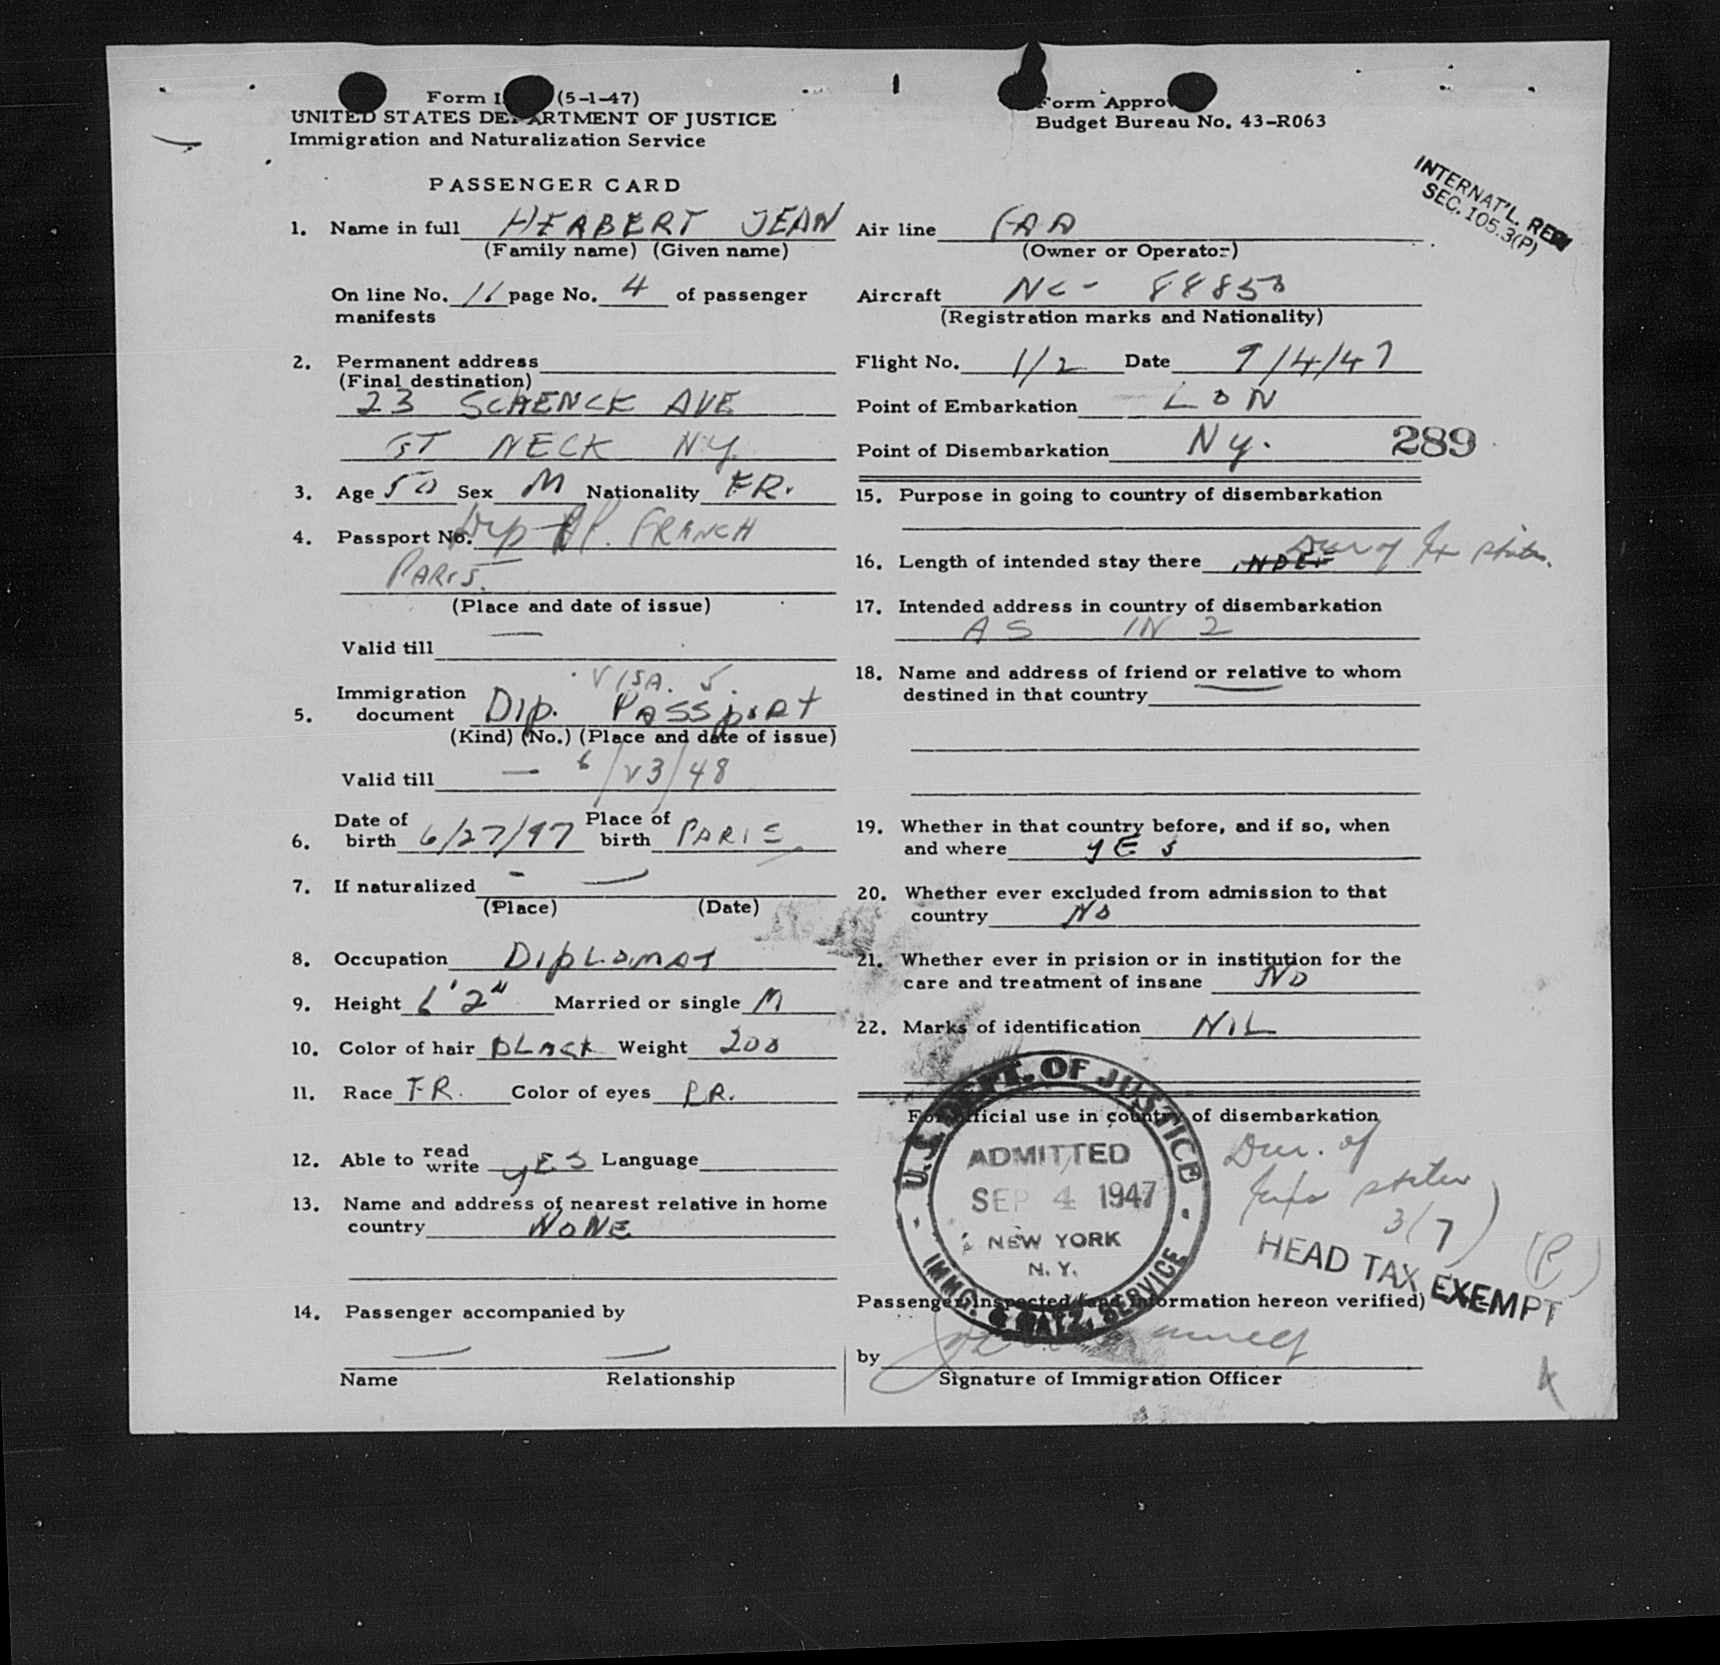 Form I (5-1-47)
UNITED STATES DEPARTMENT OF JUSTICE
Immigration and Naturalization Service
PASSENGER CARD
Form Approved
Budget Bureau No. 43-R063
INTERNAT'L. REV
SEC. 105.3(P)
1. Name in full HERBERT JEAN
(Family name) (Given name)
On line No. 11 page No. 4 of passenger
manifests
2. Permanent address
(Final destination)
23 SCHENCK AVE
GT NECK N.Y.
3. Age 50 Sex M Nationality FR.
4. Passport No. Dip FRANCH
PARIS.
(Place and date of issue)
Valid till —
VISA. 5.
5. Immigration document Dip. PASSport
(Kind) (No.) (Place and date of issue)
Valid till — 6/23/48
6. Date of birth 6/27/97 Place of birth PARIS
7. If naturalized - —
(Place) (Date)
8. Occupation DIPLOMAT
9. Height 6'2" Married or single M
10. Color of hair BLACK Weight 200
11. Race FR. Color of eyes BR.
12. Able to read write yES Language
13. Name and address of nearest relative in home
country NONE
14. Passenger accompanied by
— —
Name Relationship
Air line
(Owner or Operator)
Aircraft NC- 88858
(Registration marks and Nationality)
Flight No. 1/2 Date 9/4/47
Point of Embarkation LON
Point of Disembarkation Ny. 289
15. Purpose in going to country of disembarkation
16. Length of intended stay there INDEF Dur of status.
17. Intended address in country of disembarkation
AS IN 2
18. Name and address of friend or relative to whom
destined in that country
19. Whether in that country before, and if so, when
and where yES
20. Whether ever excluded from admission to that
country NO
21. Whether ever in prision or in institution for the
care and treatment of insane NO
22. Marks of identification NIL
For official use in country of disembarkation
U.S. DEPT. OF JUSTICE
ADMITTED
SEP 4 1947
NEW YORK
N. Y.
IMMG. & NATZ. SERVICE
Dur. of
status
3(7)
(P)
HEAD TAX EXEMPT
Passenger inspected (and information hereon verified)
by
Signature of Immigration Officer
K